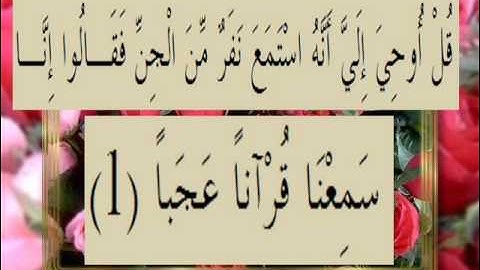 قُلْ أُوحِيَ إِلَيَّ أَنَّهُ اسْتَمَعَ نَفَرٌ مِّنَ الْجِنِّ فَقَـــالُوا إِنَّـــا
سَمِعْنَا قُرْآناً عَجَباً (1)